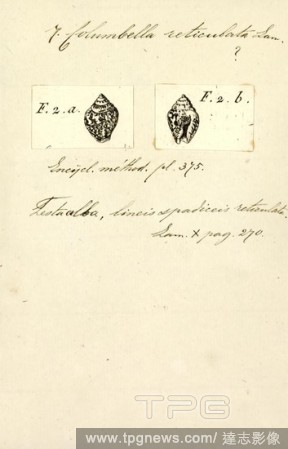 7. Columbella reticulata Lam.
?
F. 2. a.
F. 2. b.
Encycl. méthod. pl. 375.
Testa alba, lineis spadiceis reticulata.
Lam. X pag. 270.
TPG
www.tpgnews.com / 達志影像